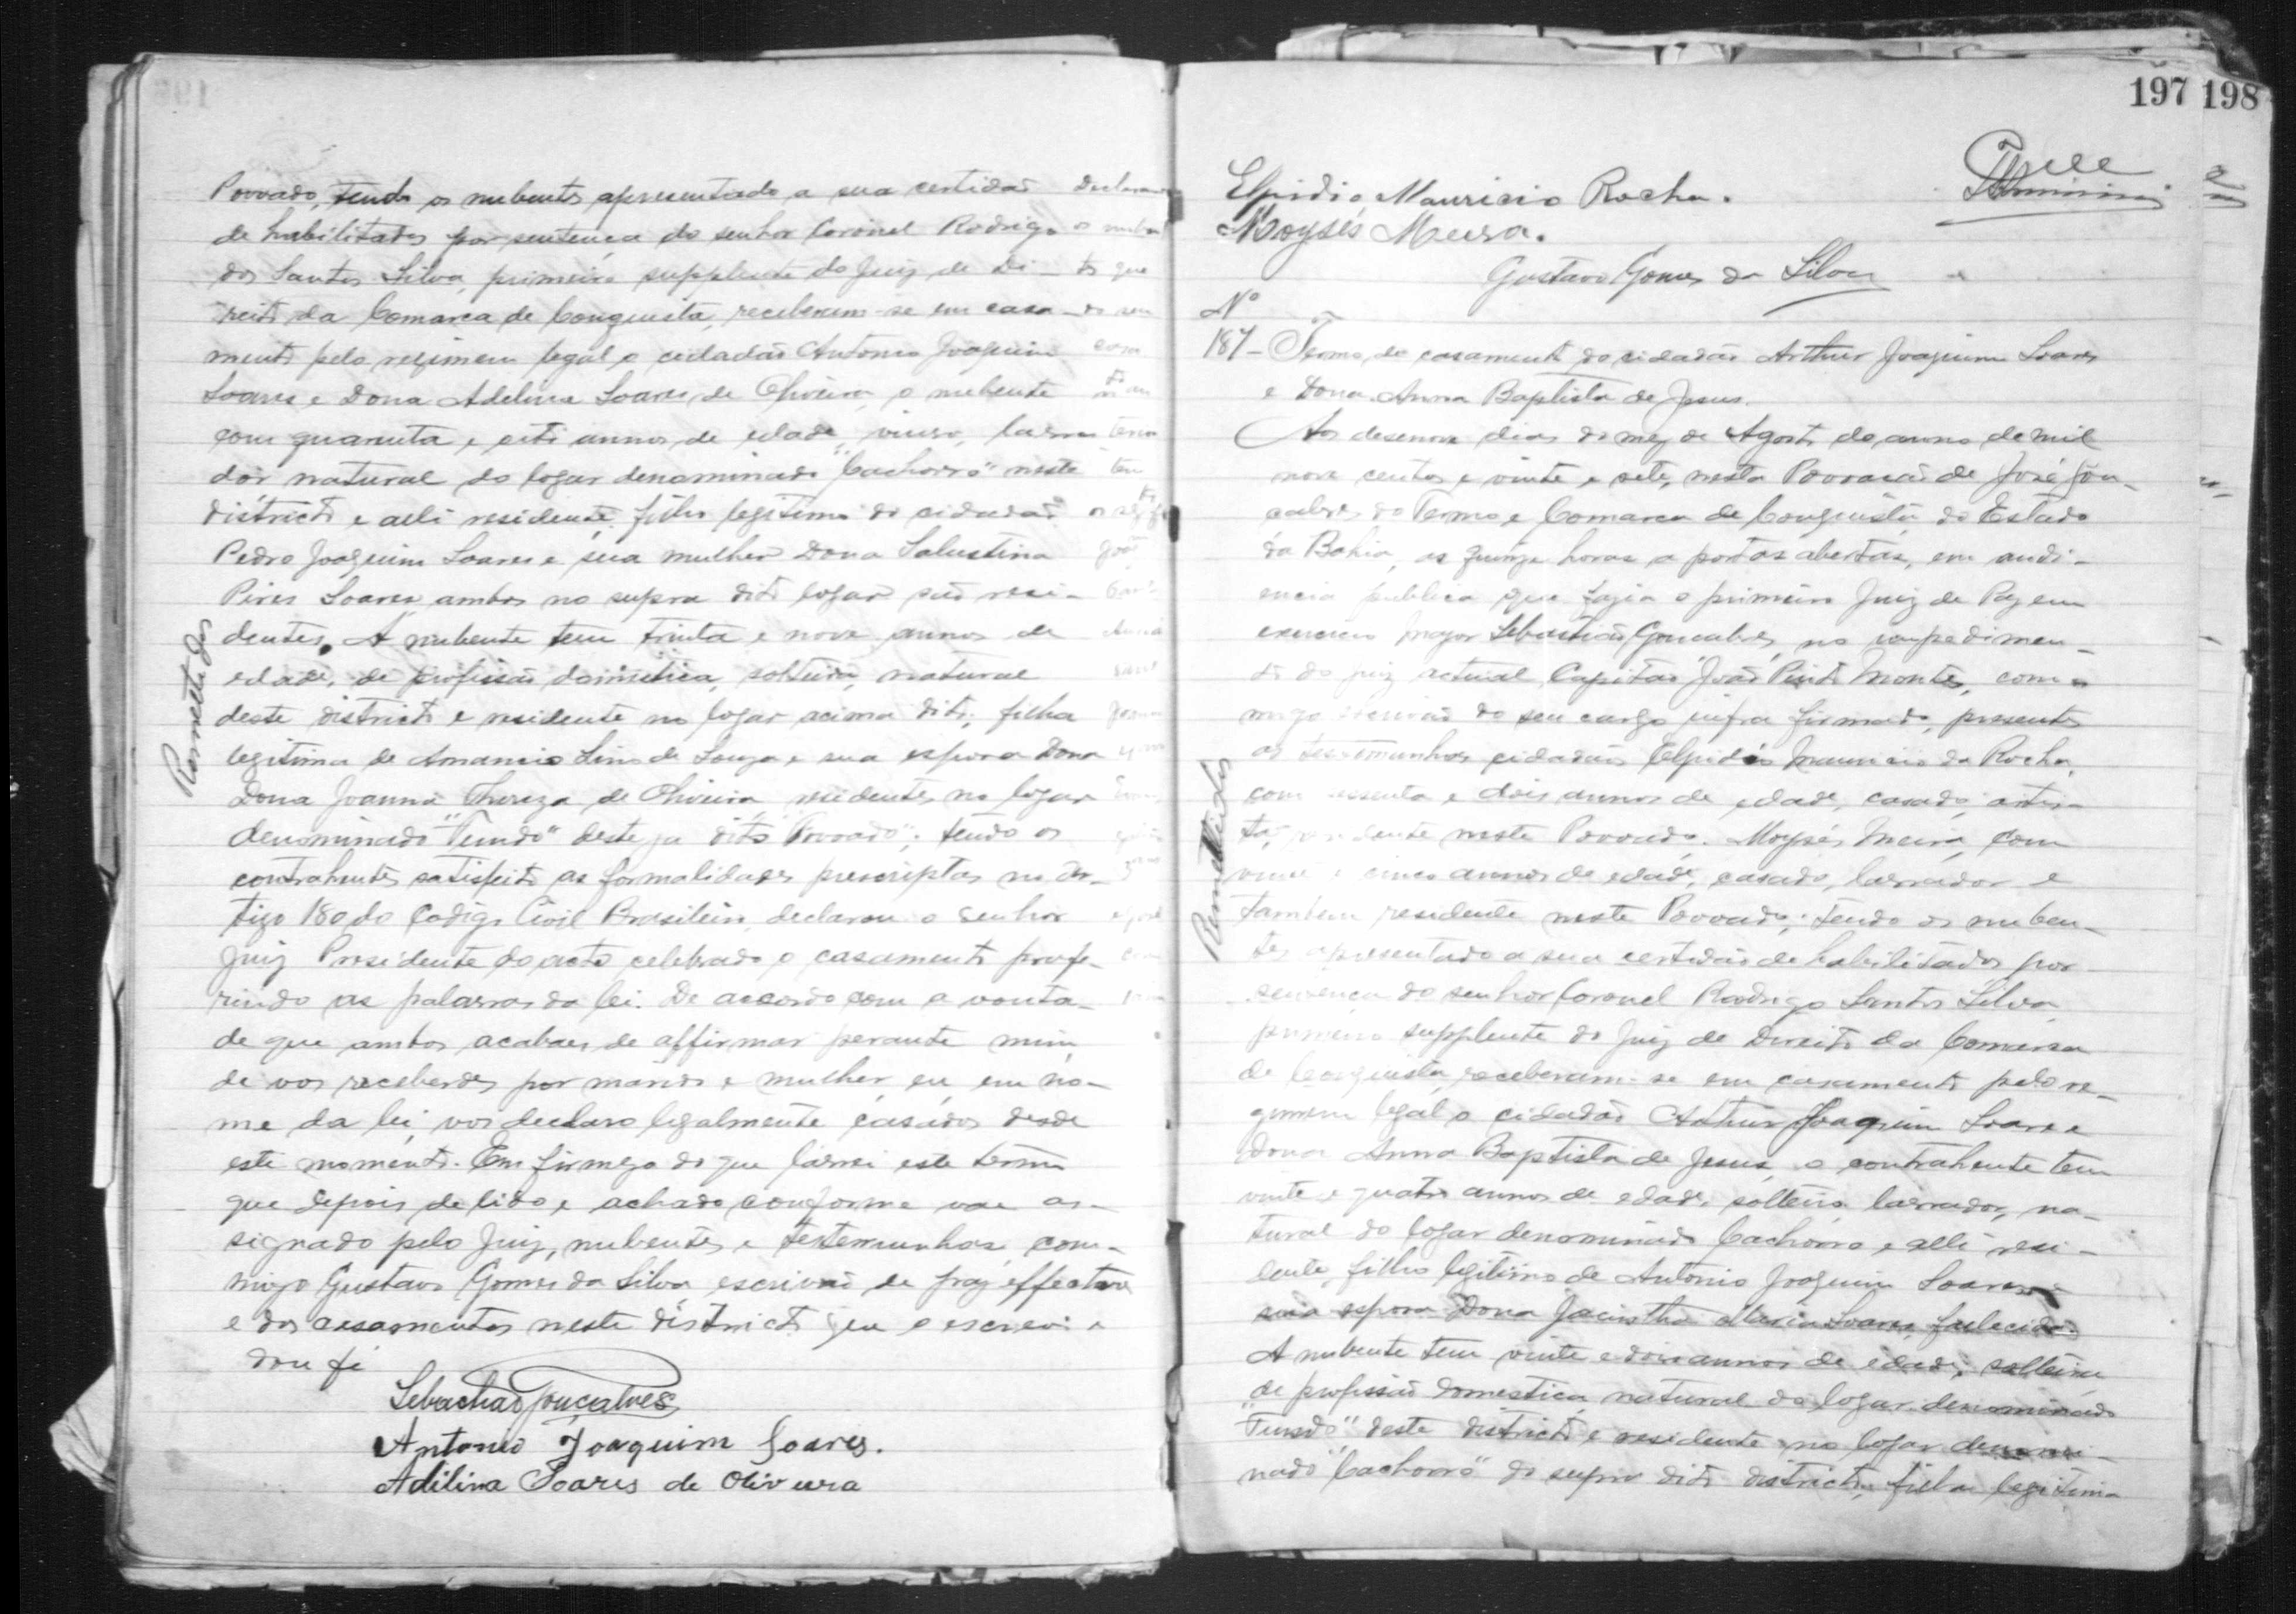 Povoado, tendo os nubentes apresentado a sua certidão
de habilitados por sentença do senhor Coronel Rodrigo
dos Santos Silva, primeiro supplente do Juiz de Di-
reito da Comarca de Conquista, receberam-se em casa-
mento pelo regimem legal o cidadão Antonio Joaquim
Soares e Dona Adelina Soares de Oliveira, o nubente
com quarenta e sete annos de edade, viuvo, lavra
dor natural do logar denominado "Cachorro" neste
districto e alli residente, filho legitimo do cidadão
Pedro Joaquim Soares e sua mulher Dona Salustina
Pires Soares, ambos no supra dito logar são resi-
dentes. A nubente tem trinta e nove annos de
edade, de profissão domestica, solteira, natural
deste districto e residente no logar acima dito, filha
legitima de Amancio Lino de Souza e sua esposa Dona
Dona Joanna Thereza de Oliveira residentes no logar
denominado "Fundo" deste ja dito "Povoado"; tendo os
contrahentes satisfeito as formalidades prescriptas no Ar-
tigo 180 do Codigo Civil Brasileiro, declarou o Senhor
Juiz Presidente do acto celebrado o casamento profe-
rindo as palavras da lei. De accordo com a vonta-
de que ambos acabaes de affirmar perante mim,
de vos receberdes por marido e mulher, eu em no-
me da lei, vos declaro legalmente casados desde
este momento. Em firmeza do que lavrei este termo
que depois de lido e achado conforme vae as-
signado pelo Juiz, nubentes e testemunhas, com-
migo Gustavo Gomes da Silva escrivão de paz effectivo
e dos casamentos neste districto que o escrevi e
dou fé
Sebastião Gonçalves
Antonio Joaquim Soares.
Adilina Soares de Oliveira
Remettidos
197 198
Elpidio Mauricio Rocha.
Moysés Meira.
Gustavo Gomes da Silva
Nº
187- Termo de casamento do cidadão Arthur Joaquim Soares
e Dona Anna Baptista de Jesus.
Aos desenove dias do mez de Agosto do anno de mil
nove centos e vinte e sete, nesta Povoação de José Gon-
çalves do Termo e Comarca de Conquista do Estado
da Bahia, as quinze horas a portas abertas, em audi-
encia publica que fazia o primeiro Juiz de Paz em
exercicio Major Sebastião Gonçalves, no impedimen-
to do juiz actual Capitão João Pinto Montes, com
migo escrivão do seu cargo infra firmado, presentes
as testemunhas cidadãos Elpidio Mauricio da Rocha,
com sessenta e dois annos de edade, casado, artis-
ta, residente neste Povoado. Moysés Meira, com
e cinco annos de edade, casado, lavrador e
tambem residente neste Povoado; tendo os nuben-
tes apresentado a sua certidão de habilitados por
sentença do senhor Coronel Rodrigo Santos Silva
primeiro supplente do Juiz de Direito da Comarca
de Conquista, receberam-se em casamento pelo re-
gimem legal o cidadão Arthur Joaquim Soares e
Dona Anna Baptista de Jesus, o contrahente tem
vinte e quatro annos de edade, solteiro, lavrador, na-
tural do logar denominado Cachorro e alli resi-
dente, filho legitimo de Antonio Joaquim Soares e
sua esposa Dona Jacintha Maria Soares, fallecida.
A nubente tem vinte e dois annos de edade, solteira
de profissão domestica, natural do logar denominado
"Fundo" deste districto e residente no logar denomi-
nado "Cachorro" do supra dito districto, filha legitima
Remettidos